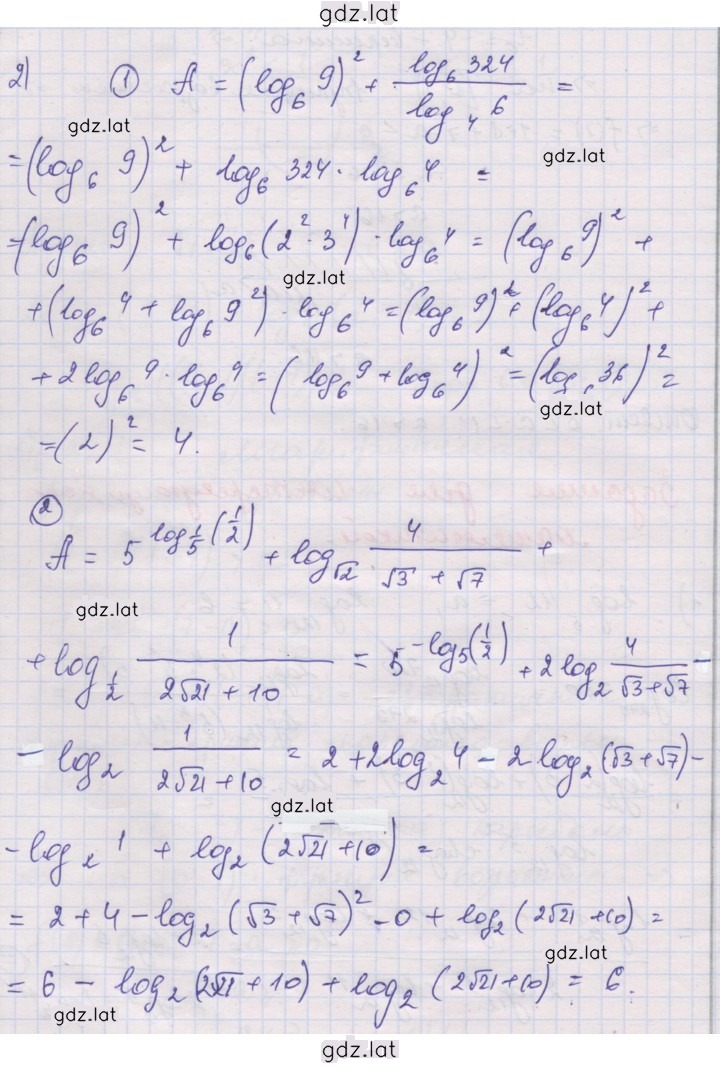 gdz.lat
2) ① A = (log₆ 9)² + log₆ 324 / log₄ 6 =
gdz.lat
gdz.lat
= (log₆ 9)² + log₆ 324 · log₆ 4 =
= (log₆ 9)² + log₆ (2² · 3⁴) · log₆ 4 = (log₆ 9)² +
gdz.lat
+ (log₆ 4 + log₆ 9²) · log₆ 4 = (log₆ 9)² + (log₆ 4)² +
+ 2 log₆ 9 · log₆ 4 = (log₆ 9 + log₆ 4)² = (log₆ 36)² =
gdz.lat
= (2)² = 4.
②
A = 5^(log_{1/5} (1/2)) + log_{√2} 4 / (√3 + √7) +
gdz.lat
+ log_{1/2} 1 / (2√21 + 10) = 5^(-log₅ (1/2)) + 2 log₂ 4 / (√3 + √7) -
- log₂ 1 / (2√21 + 10) = 2 + 2 log₂ 4 - 2 log₂ (√3 + √7) -
gdz.lat
- log₂ 1 + log₂ (2√21 + 10) =
= 2 + 4 - log₂ (√3 + √7)² - 0 + log₂ (2√21 + 10) =
gdz.lat
= 6 - log₂ (2√21 + 10) + log₂ (2√21 + 10) = 6.
gdz.lat
gdz.lat